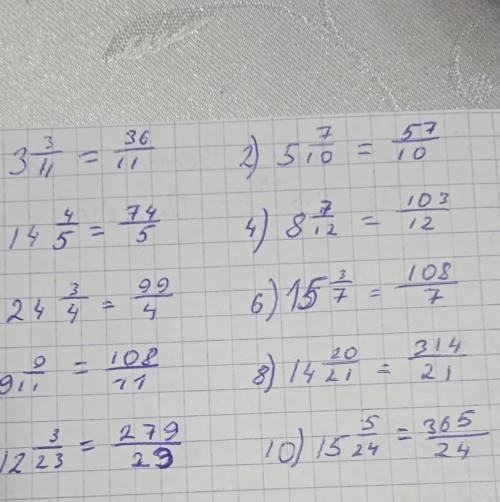 3 3/11 = 36/11 2) 5 7/10 = 57/10
14 4/5 = 74/5 4) 8 7/12 = 103/12
24 3/4 = 99/4 6) 15 3/7 = 108/7
9 9/11 = 108/11 8) 14 20/21 = 314/21
12 3/23 = 279/23 10) 15 5/24 = 365/24